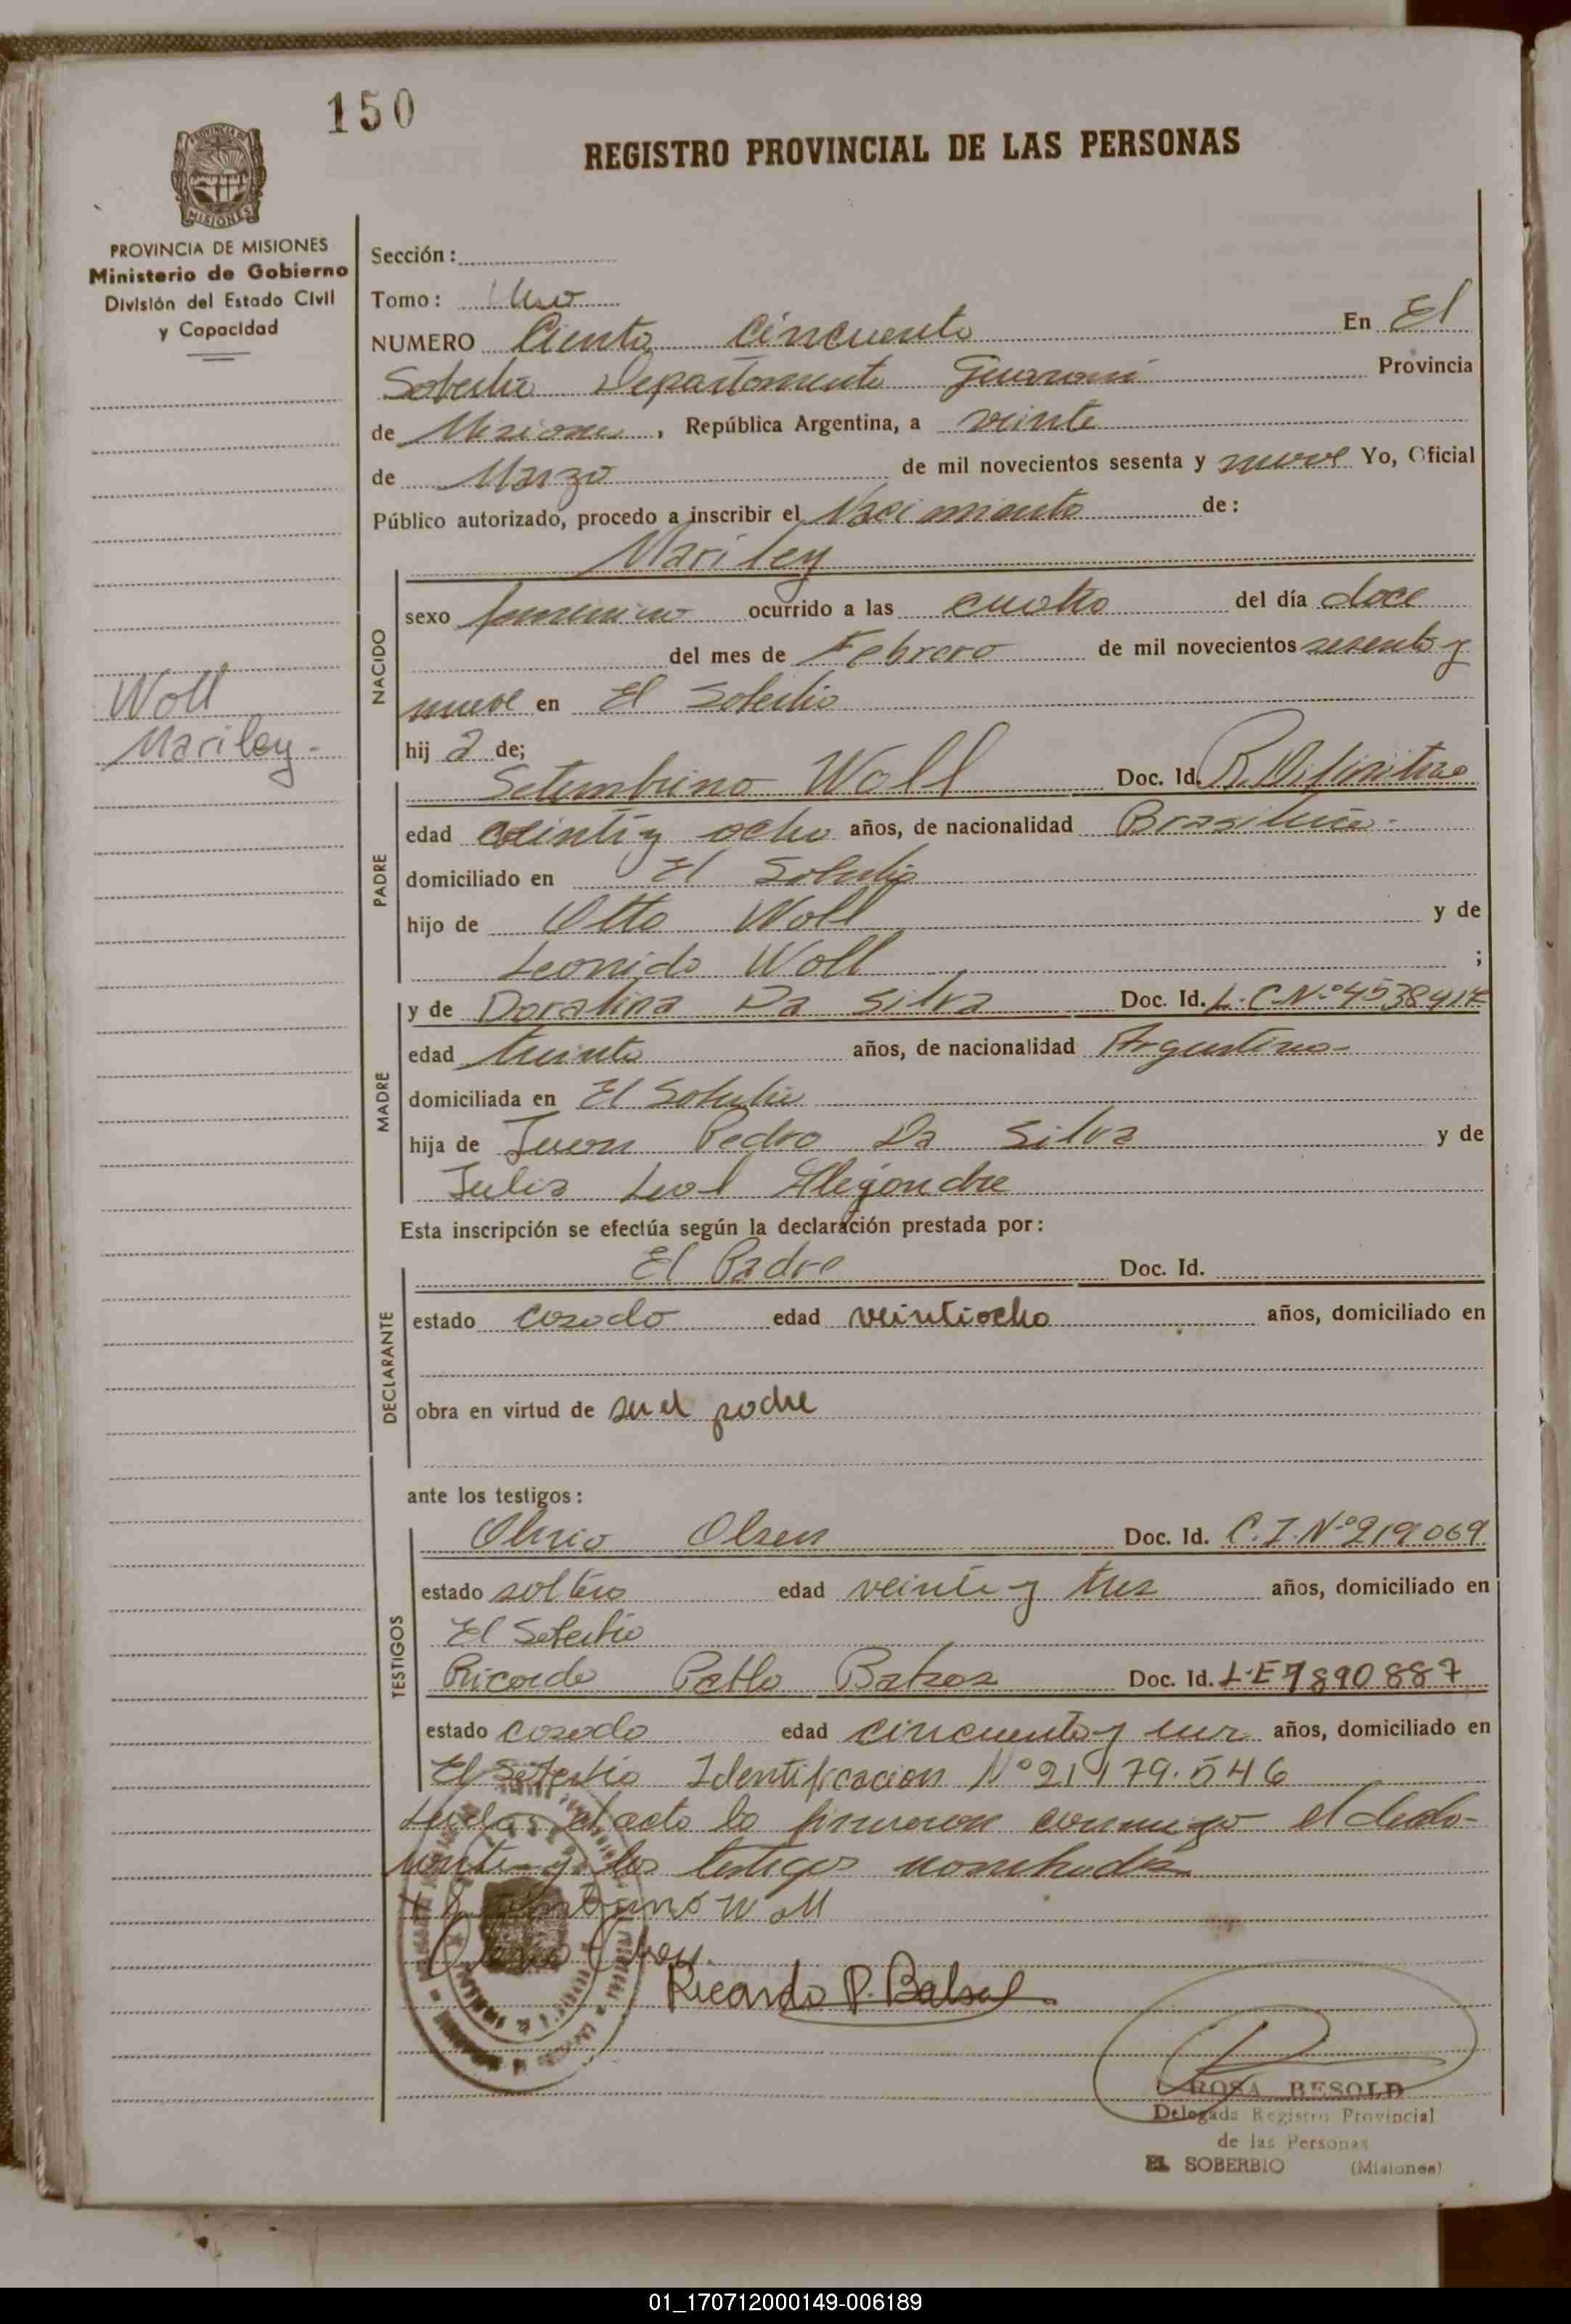 150
REGISTRO PROVINCIAL DE LAS PERSONAS
PROVINCIA DE
MISIONES
PROVINCIA DE MISIONES
Ministerio de Gobierno
División del Estado Civil
y Capacidad
Sección:
Tomo: Uno
NUMERO Ciento cincuenta En El
Soberbio Departamento Guaraní Provincia
de Misiones, República Argentina, a veinte
de Marzo de mil novecientos sesenta y nueve Yo, Oficial
Público autorizado, procedo a inscribir el Nacimiento de:
Mariley
NACIDO
sexo femenino ocurrido a las cuatro del día doce
del mes de Febrero de mil novecientos sesenta y
nueve en El Soberbio
Woll
Mariley-
hij a de;
PADRE
Setembrino Woll Doc. Id. R. Difinitivo
edad veinti y ocho años, de nacionalidad Brasilera-
domiciliado en El Soberbio
hijo de Otto Woll y de
Leonida Woll ;
MADRE
y de Doralina Da Silva Doc. Id. L.C.Nº
edad treinta años, de nacionalidad Argentina-
domiciliada en El Soberbio
hija de Juan Pedro Da Silva y de
Julia Leal Alegandre
Esta inscripción se efectúa según la declaración prestada por:
DECLARANTE
El Padre Doc. Id.
estado casado edad veintiocho años, domiciliado en
obra en virtud de ser el padre
ante los testigos:
TESTIGOS
Olsen Doc. Id. C.I.Nº 919069
estado soltero edad veinte y tres años, domiciliado en
El Soberbio
Ricardo Pablo Doc. Id. L.E 7890887
estado casado edad cincuenta y un años, domiciliado en
El Soberbio Identificacion Nº
el acto lo firmaron conmigo el decla-
rante y los testigos nombrados
Woll
Ricardo P. Balsa
ROSA BESOLD
Delegada Registro Provincial
de las Personas
EL SOBERBIO (Misiones)
01_170712000149-006189